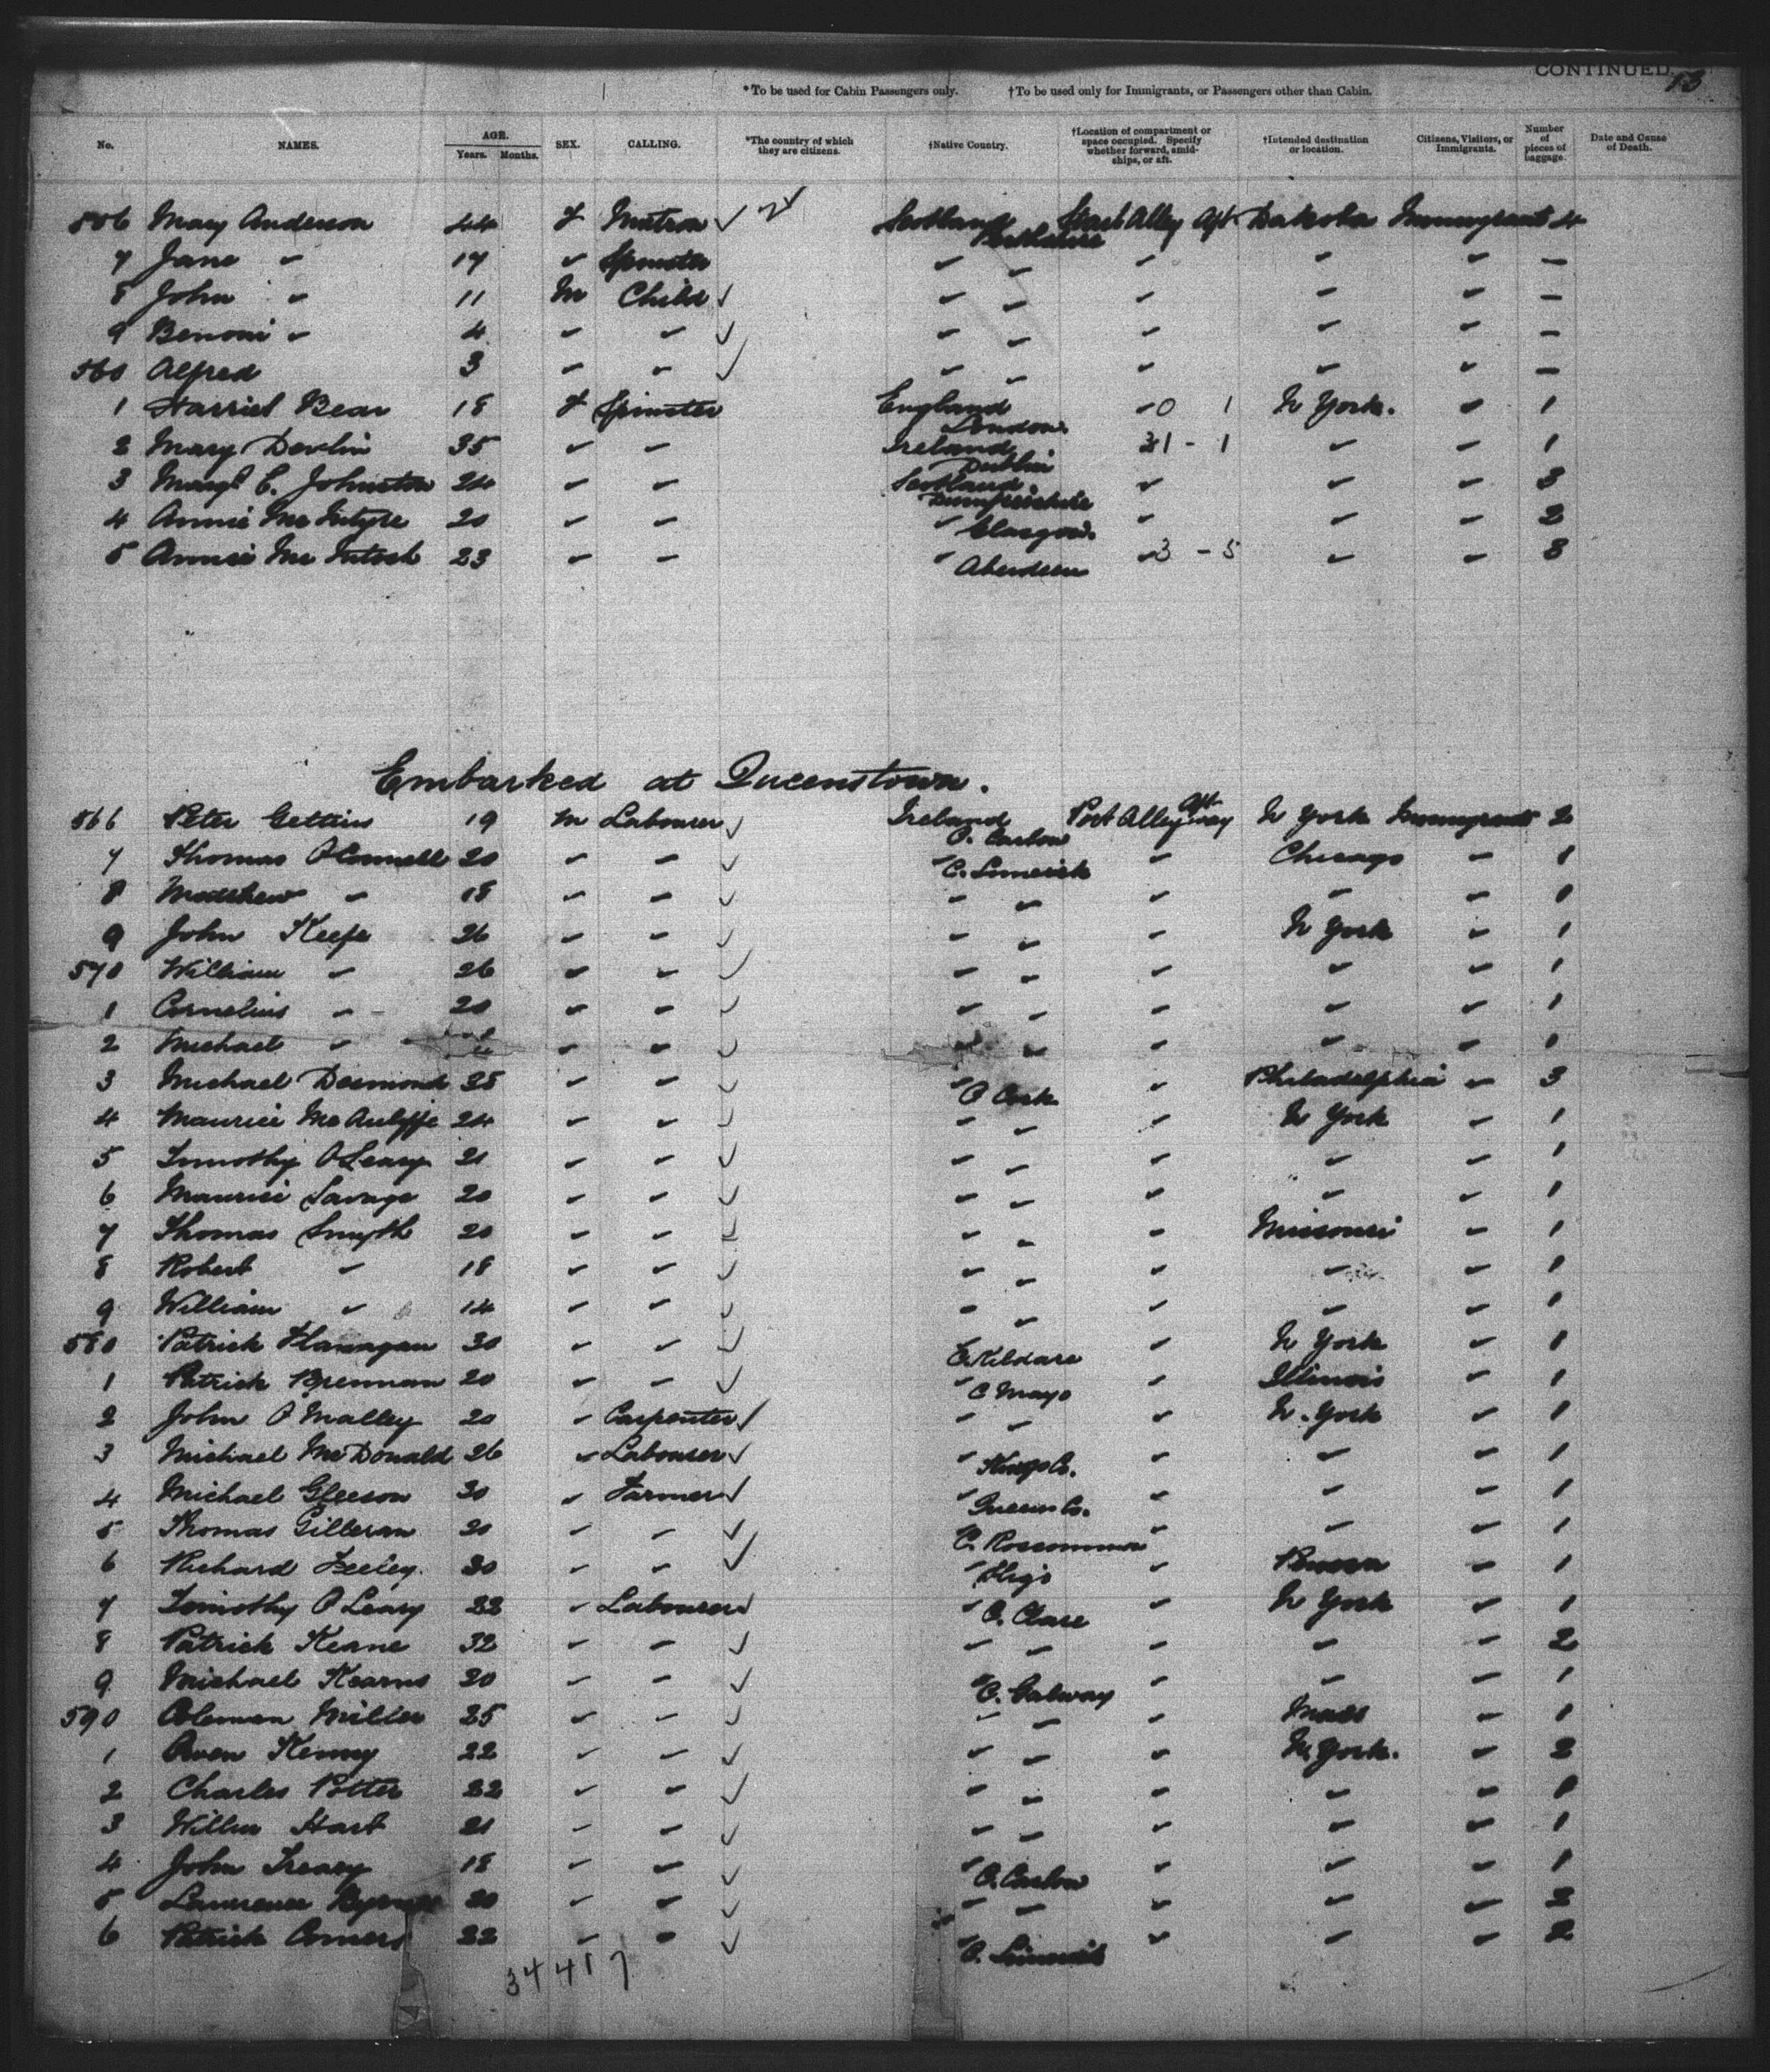 CONTINUED. 13
*To be used for Cabin Passengers only. †To be used only for Immigrants, or Passengers other than Cabin.
No. NAMES. AGE. Years. Months. SEX. CALLING. *The country of which they are citizens. †Native Country. †Location of compartment or space occupied. Specify whether forward, amidships, or aft. †Intended destination or location. Citizens, Visitors, or Immigrants. Number of pieces of baggage. Date and Cause of Death.
556 Mary Anderson 44 F Matron ✓ Scotland Perthshire Alley Aft Dakota Immigrant 4
7 Jane " 17 " Spinster " " " " " —
8 John " 11 M Child ✓ " " " " " —
9 Benoni " 4 " " ✓ " " " " " —
560 Alfred 3 " " ✓ " " " " " —
1 Harriet Bear 18 F Spinster England London " 0 1 N York. " 1
2 Mary Devlin 35 " " Ireland Dublin 31 - 1 " " 1
3 Margt C. Johnston 24 " " Scotland. Dumfriesshire " " " 3
4 Annie McIntyre 20 " " " Glasgow. " " " 2
5 Annie McIntosh 23 " " " Aberdeen 3 - 5 " " 3
Embarked at Queenstown.
566 Peter Gettins 19 M Labourer ✓ Ireland C. Carlow Port Alleyway Aft N York Immigrant 2
7 Thomas O'Connell 20 " " ✓ " C. Limerick " Chicago " 1
8 Matthew " 18 " " ✓ " " " " " 1
9 John Keefe 26 " " ✓ " " " N York " 1
570 William " 26 " " ✓ " " " " " 1
1 Cornelius " 20 " " ✓ " " " " " 1
2 Michael " " " ✓ " " " " " 1
3 Michael Desmond 25 " " ✓ " C Cork " Philadelphia " 3
4 Maurice McAuliffe 24 " " ✓ " " " N York " 1
5 Timothy O'Leary 21 " " ✓ " " " " " 1
6 Maurice Savage 20 " " ✓ " " " " " 1
7 Thomas Smyth 20 " " ✓ " " " Missouri " 1
8 Robert " 18 " " ✓ " " " " " 1
9 William " 14 " " ✓ " " " " " 1
580 Patrick Flanagan 30 " " ✓ C. Kildare " N York " 1
1 Patrick Brennan 20 " " ✓ " C Mayo " Illinois " 1
2 John O'Malley 20 " Carpenter ✓ " " " N. York " 1
3 Michael McDonald 26 " Labourer ✓ " Kings Co. " " " 1
4 Michael Gleeson 30 " Farmer ✓ " Queens Co. " " " 1
5 Thomas Gilleran 20 " " ✓ " C. Roscommon " " " 1
6 Richard Feeley 30 " " ✓ " Sligo " " 1
7 Timothy O'Leary 22 " Labourer ✓ " C. Clare " N York " 1
8 Patrick Keane 32 " " ✓ " " " " " 2
9 Michael Kearns 20 " " ✓ " C. Galway " " " 1
590 Coleman Miller 25 " " ✓ " " " Mass " 1
1 Owen Kenny 22 " " ✓ " " " N York. " 2
2 Charles Potter 22 " " ✓ " " " " " 1
3 Hart 21 " " ✓ " " " " " 1
4 John Treacy 18 " " ✓ " C. Carlow " " " 1
5 Lawrence 20 " " ✓ " " " " " 2
6 Patrick Comers 22 " " ✓ " C. Limerick " " " 2
34417